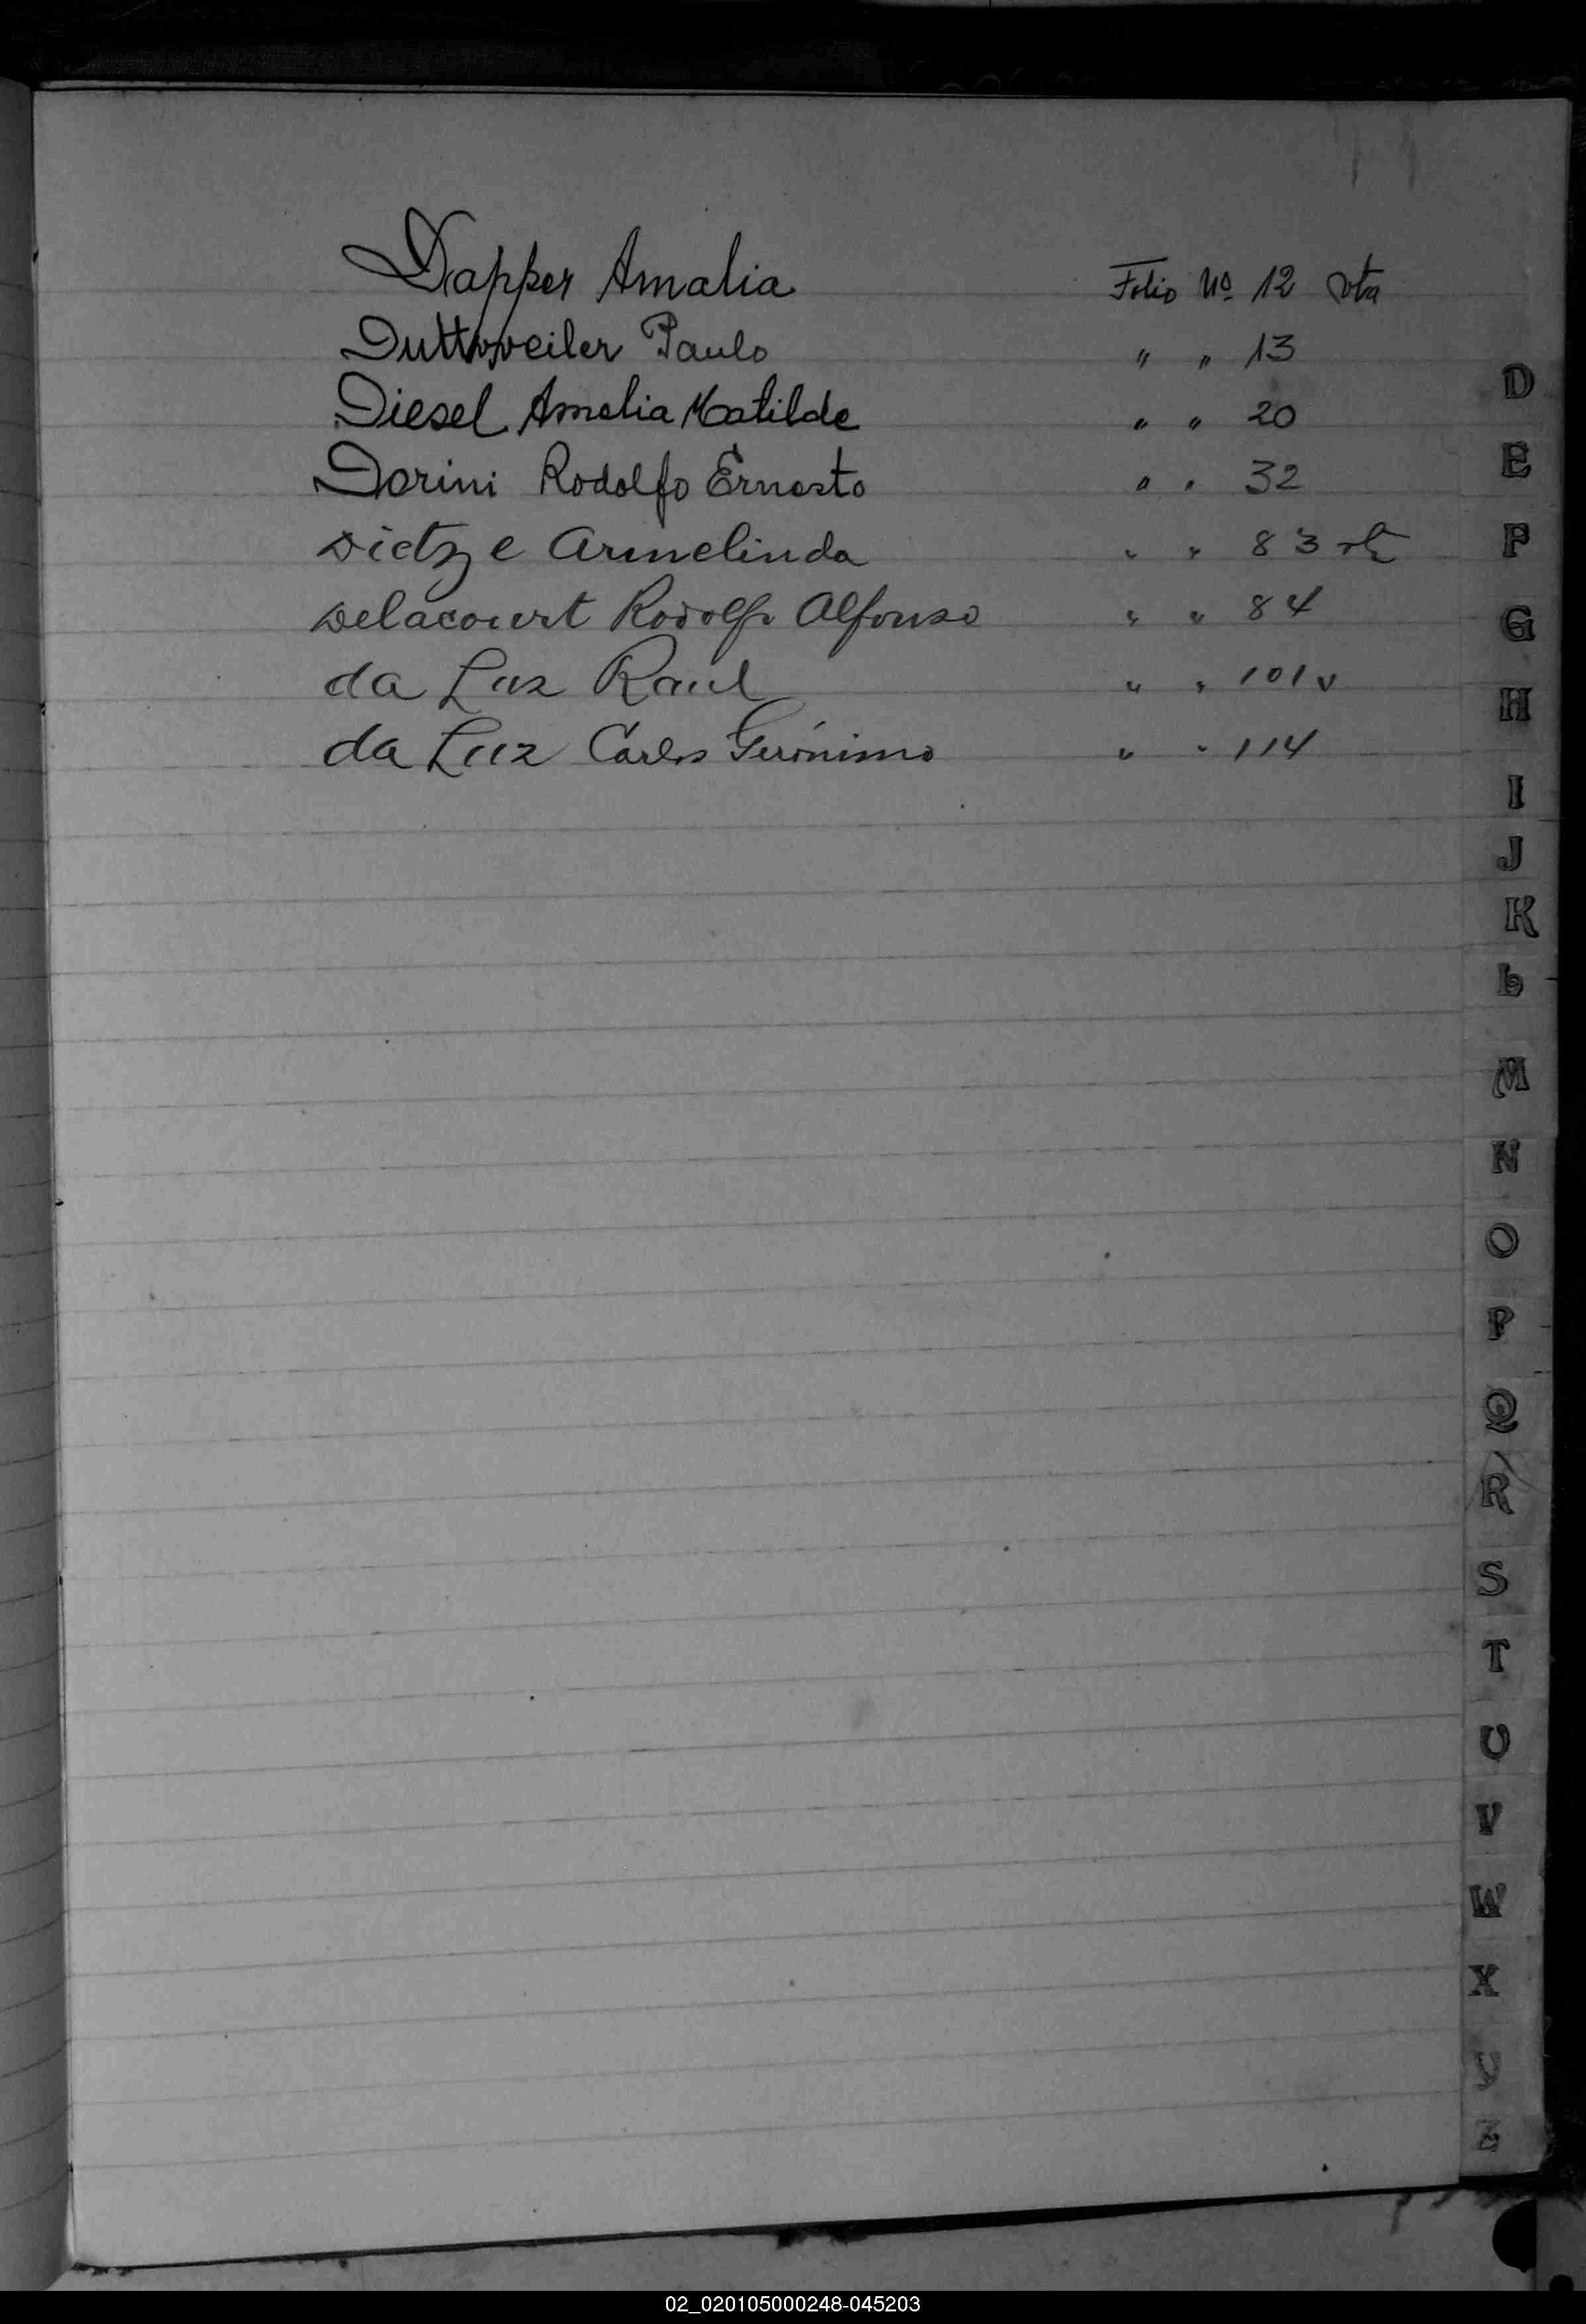 Dapper Amalia Folio Nº 12 vta
Duttweiler Paulo " " 13
Diesel Amalia Matilde " " 20
Dorini Rodolfo Ernesto " " 32
Dietz e Armelinda " " 83 vta
Delacourt Rodolfo Alfonso " " 84
da Luz Raul " " 101 v
da Luz Carlos Gerónimo " " 114
D
E
F
G
H
I
J
K
L
M
N
O
P
Q
R
S
T
U
V
W
X
Y
Z
02_020105000248-045203